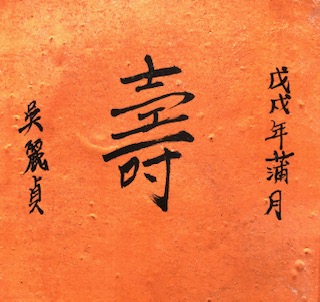 戊戌年蒲月
壽
吳麗貞